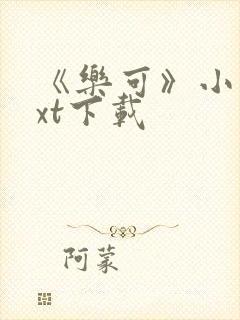 《樂可》小
xt下載
阿蒙